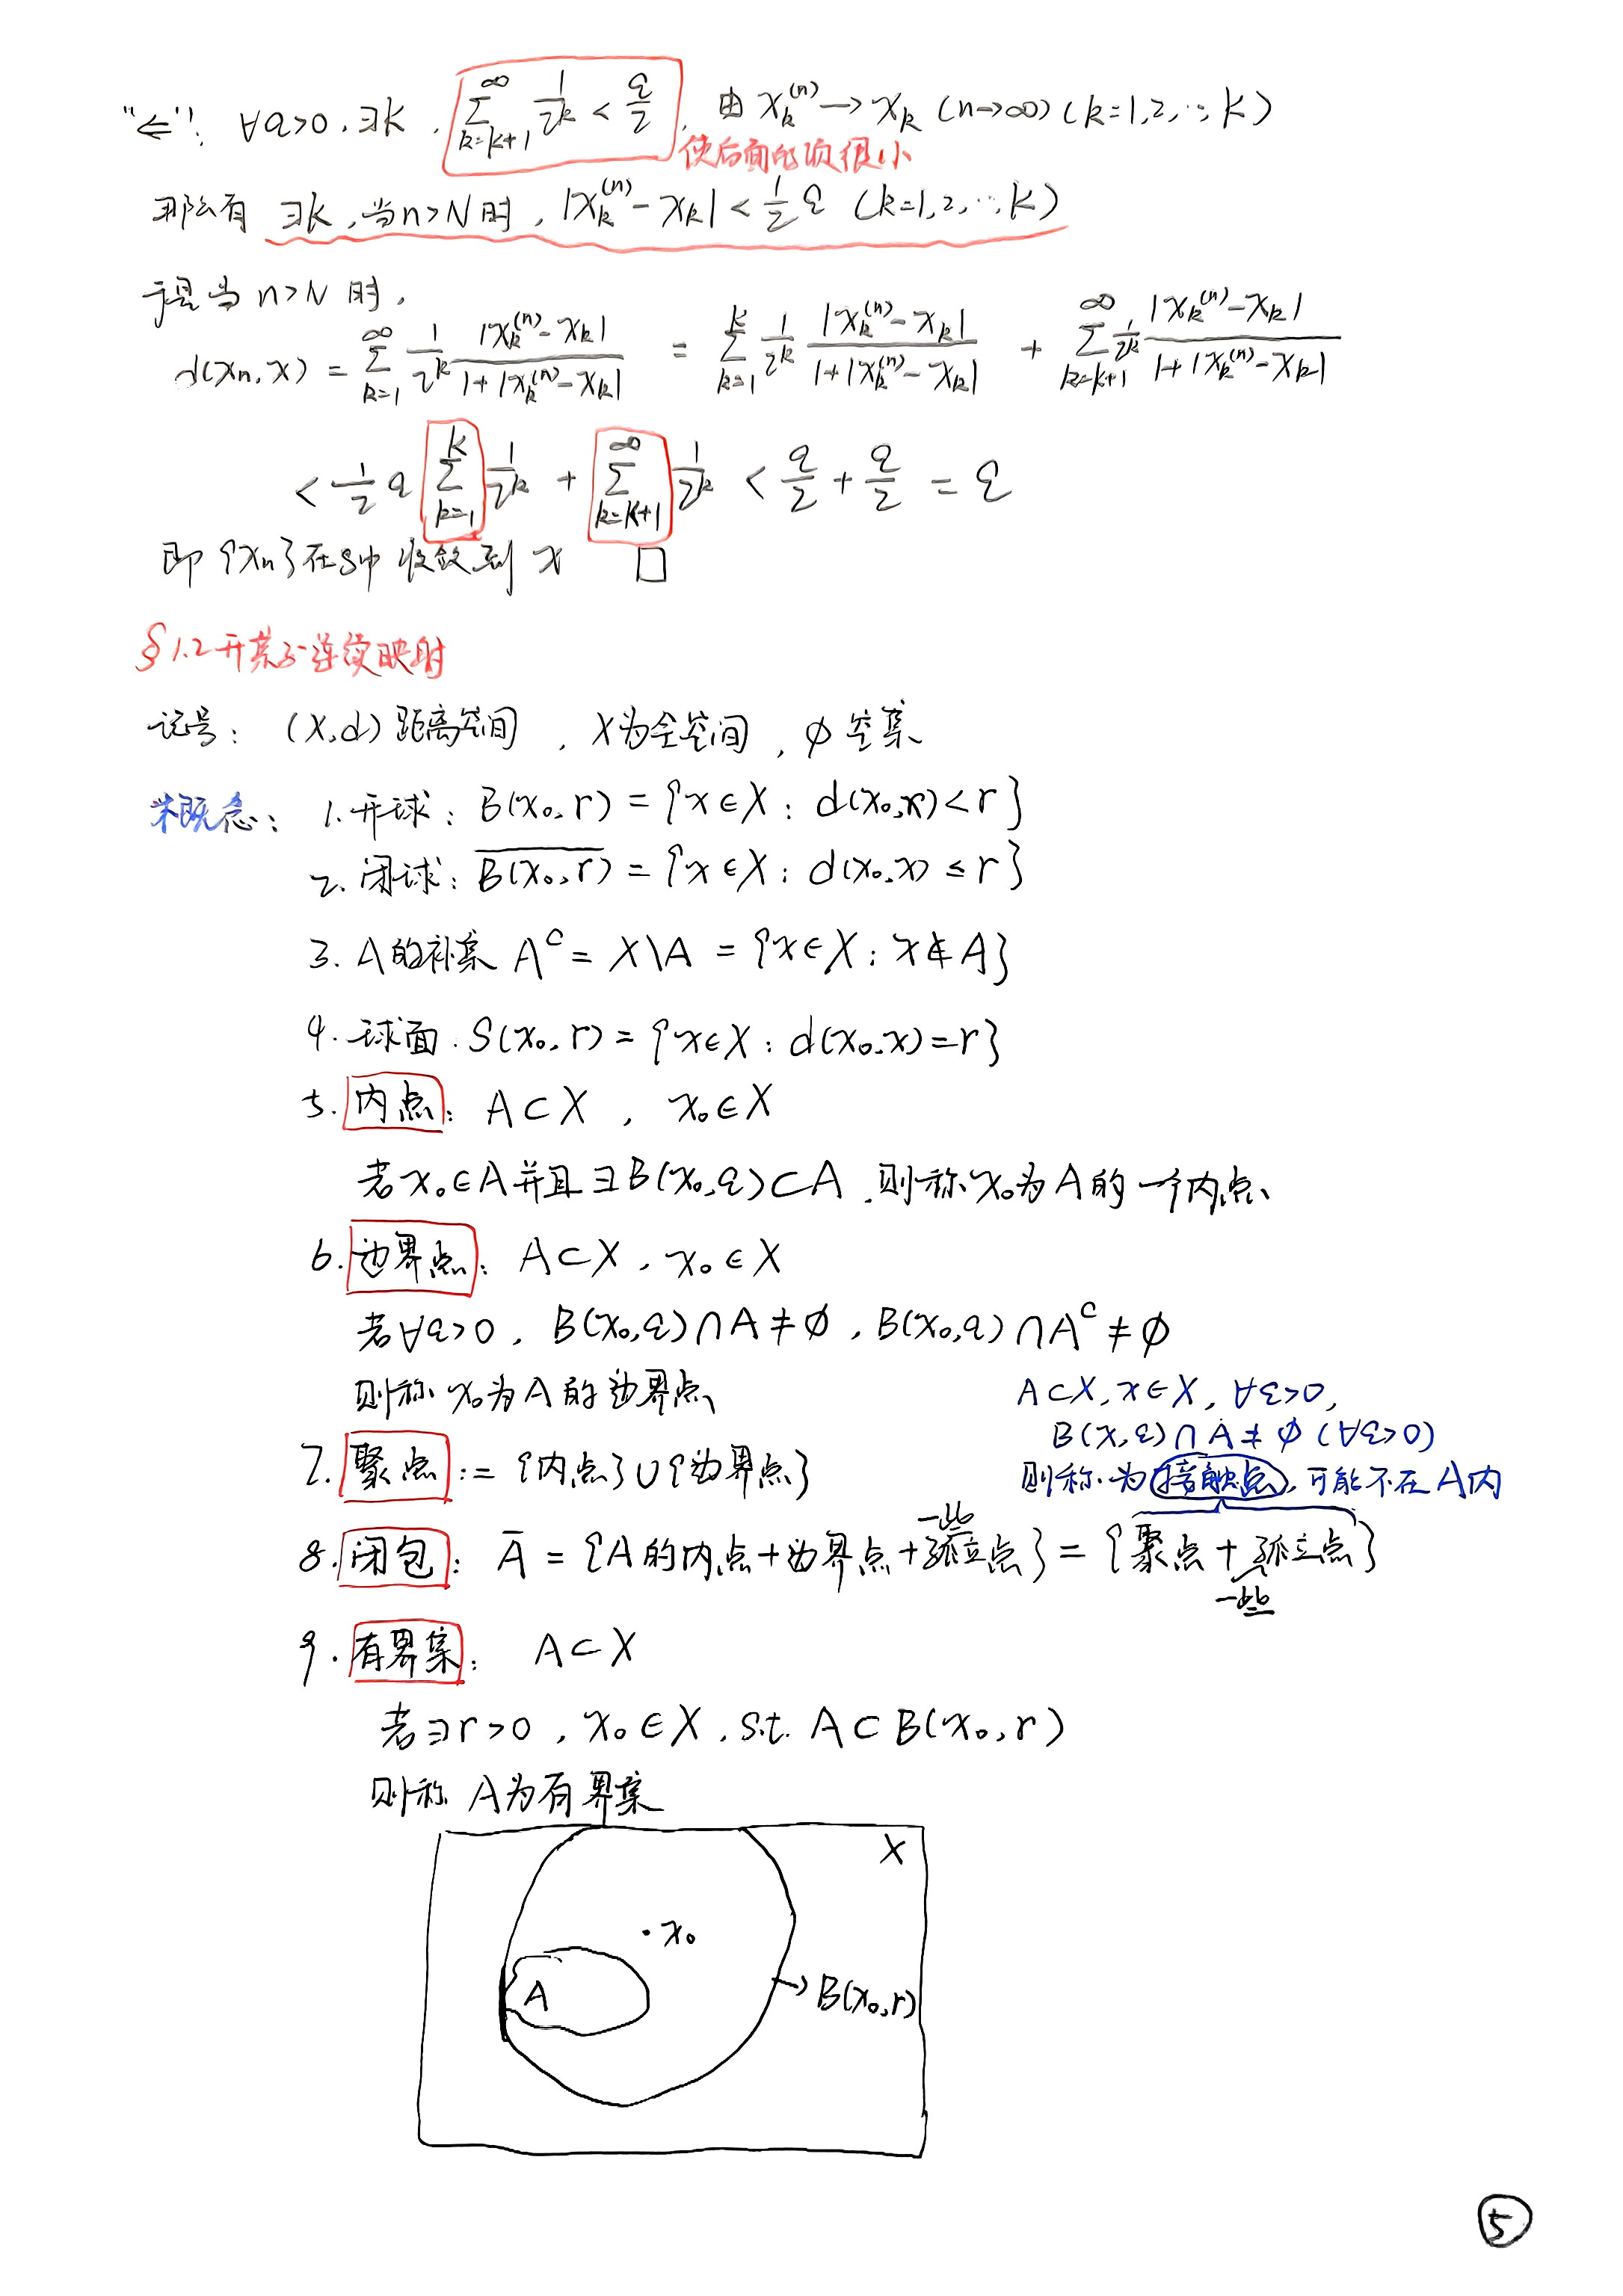 "⇐": ∀ε>0, ∃K, $\sum_{k=K+1}^{\infty} \frac{1}{2^k} < \frac{\varepsilon}{2}$, 由 $x_k^{(n)} \to x_k$ (n→∞) (k=1,2,…,K)
使后面的项很小
那么有 ∃K, 当n>N时, $|x_k^{(n)} - x_k| < \frac{1}{2}\varepsilon$ (k=1,2,…,K)
于是当 n>N 时,
$d(x_n, x) = \sum_{k=1}^{\infty} \frac{1}{2^k} \frac{|x_k^{(n)} - x_k|}{1+|x_k^{(n)} - x_k|} = \sum_{k=1}^{K} \frac{1}{2^k} \frac{|x_k^{(n)} - x_k|}{1+|x_k^{(n)} - x_k|} + \sum_{k=K+1}^{\infty} \frac{1}{2^k} \frac{|x_k^{(n)} - x_k|}{1+|x_k^{(n)} - x_k|}$
$< \frac{1}{2}\varepsilon \sum_{k=1}^{K} \frac{1}{2^k} + \sum_{k=K+1}^{\infty} \frac{1}{2^k} < \frac{\varepsilon}{2} + \frac{\varepsilon}{2} = \varepsilon$
即 {xₙ} 在S中 收敛到 x □
§1.2 开集与连续映射
记号: (X,d) 距离空间, X为全空间, ∅ 空集
概念: 1. 开球: B(x₀, r) = {x∈X: d(x₀,x)<r}
2. 闭球: $\overline{B(x_0, r)}$ = {x∈X: d(x₀,x) ≤ r}
3. A的补集 Aᶜ = X\A = {x∈X: x∉A}
4. 球面. S(x₀, r) = {x∈X: d(x₀,x)=r}
5. 内点: A⊂X, x₀∈X
若 x₀∈A 并且 ∃B(x₀,ε)⊂A, 则称 x₀为A的一个内点
6. 边界点: A⊂X, x₀∈X
若∀ε>0, B(x₀,ε)∩A≠∅, B(x₀,ε)∩Aᶜ≠∅
则称 x₀为A的边界点
A⊂X, x∈X, ∀ε>0,
B(x,ε)∩A≠∅ (∀ε>0)
则称为接触点, 可能不在A内
7. 聚点:= {内点}∪{边界点}
8. 闭包: $\bar{A}$ = {A的内点+边界点+一些孤立点} = {聚点+一些孤立点}
9. 有界集: A⊂X
若∃r>0, x₀∈X, s.t. A⊂B(x₀, r)
则称 A为有界集
X
·x₀
A
→B(x₀,r)
5